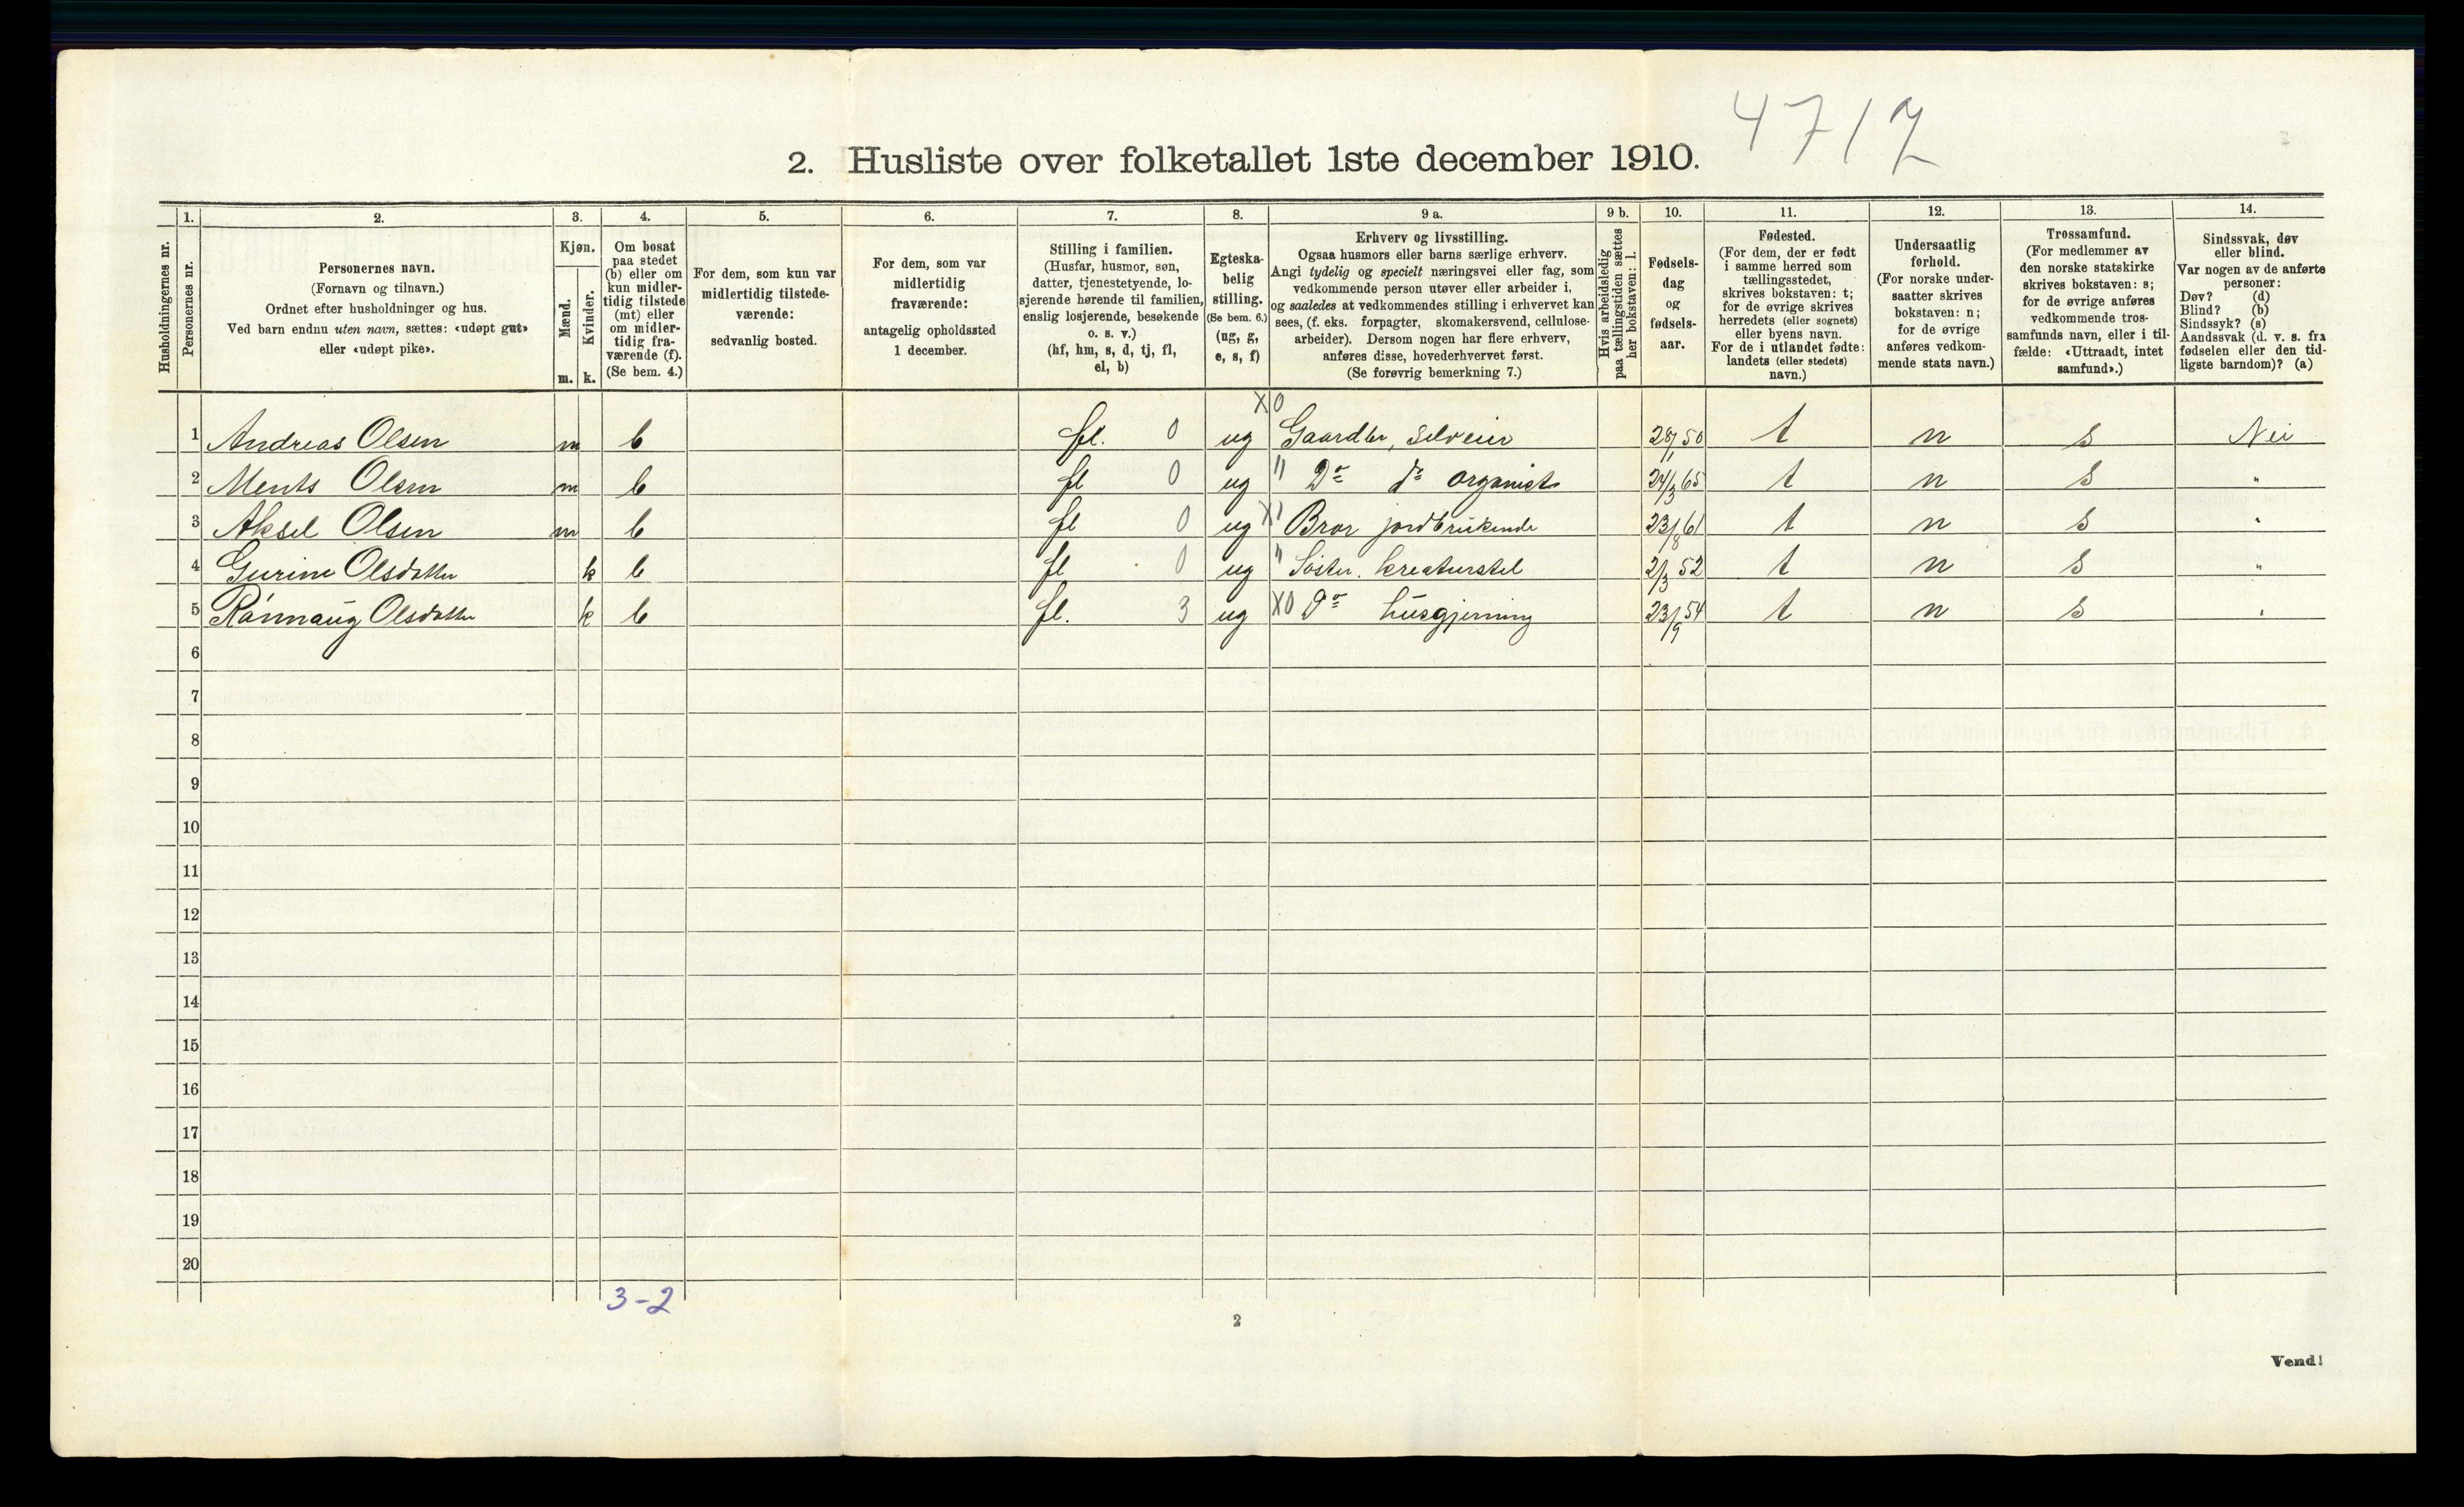 4712
2. Husliste over folketallet 1ste december 1910.
Husholdningernes nr.
1.
Personernes nr.
2.
Personernes navn.
(Fornavn og tilnavn.)
Ordnet efter husholdninger og hus.
Ved barn endnu uten navn, sættes: «udøpt gut»
eller «udøpt pike».
3.
Kjøn.
Mænd.
m.
Kvinder.
k.
4.
Om bosat
paa stedet
(b) eller om
kun midler-
tidig tilstede
(mt) eller
om midler-
tidig fra-
værende (f).
(Se bem. 4.)
5.
For dem, som kun var
midlertidig tilstede-
værende:
sedvanlig bosted.
6.
For dem, som var
midlertidig
fraværende:
antagelig opholdssted
1 december.
7.
Stilling i familien.
(Husfar, husmor, søn,
datter, tjenestetyende, lo-
sjerende hørende til familien,
enslig losjerende, besøkende
o. s. v.)
(hf, hm, s, d, tj, fl,
el, b)
8.
Egteska-
belig
stilling.
(Se bem. 6.)
(ug, g,
e, s, f)
9 a.
Erhverv og livsstilling.
Ogsaa husmors eller barns særlige erhverv.
Angi tydelig og specielt næringsvei eller fag, som
vedkommende person utøver eller arbeider i,
og saaledes at vedkommendes stilling i erhvervet kan
sees, (f. eks. forpagter, skomakersvend, cellulose-
arbeider). Dersom nogen har flere erhverv,
anføres disse, hovederhvervet først.
(Se forøvrig bemerkning 7.)
9 b.
Hvis arbeidsledig
paa tællingstiden sættes
her bokstaven: l.
10.
Fødsels-
dag
og
fødsels-
aar.
11.
Fødested.
(For dem, der er født
i samme herred som
tællingsstedet,
skrives bokstaven: t;
for de øvrige skrives
herredets (eller sognets)
eller byens navn.
For de i utlandet fødte:
landets (eller stedets)
navn.)
12.
Undersaatlig
forhold.
(For norske under-
saatter skrives
bokstaven: n;
for de øvrige
anføres vedkom-
mende stats navn.)
13.
Trossamfund.
(For medlemmer av
den norske statskirke
skrives bokstaven: s;
for de øvrige anføres
vedkommende tros-
samfunds navn, eller i til-
fælde: «Uttraadt, intet
samfund».)
14.
Sindssvak, døv
eller blind.
Var nogen av de anførte
personer:
Døv? (d)
Blind? (b)
Sindssyk? (s)
Aandssvak (d. v. s. fra
fødselen eller den tid-
ligste barndom)? (a)
1 Andreas Olsen m b fl. 0 ug X0 Gaardbr, selveier 28/1 50 t n s Nei
2 Ments Olsen m b fl 0 ug " Do do organist 24/3 65 t n s "
3 Aksel Olsen m b fl 0 ug X1 Bror jordbrukende 23/8 61 t n s "
4 Gurine Olsdatter k b fl 0 ug " Søster. kreaturstel 2/3 52 t n s "
5 Rønnaug Olsdatter k b fl. 3 ug X0 Do husgjerning 23/9 54 t n s "
6
7
8
9
10
11
12
13
14
15
16
17
18
19
20
3-2
2
Vend!